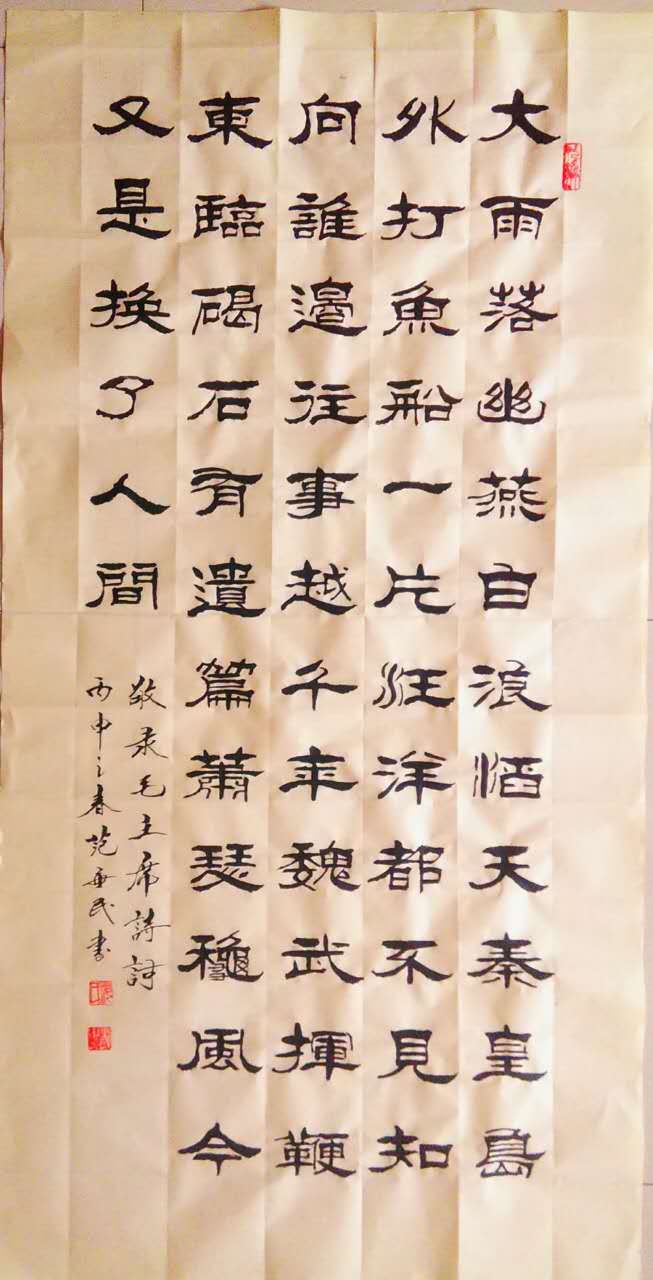 大雨落幽燕白浪滔天秦皇島
外打魚船一片汪洋都不見知
向誰邊往事越千年魏武揮鞭
東臨碣石有遺篇蕭瑟穐風今
又是换了人間
敬录毛主席詩詞
丙申之春范兵民書